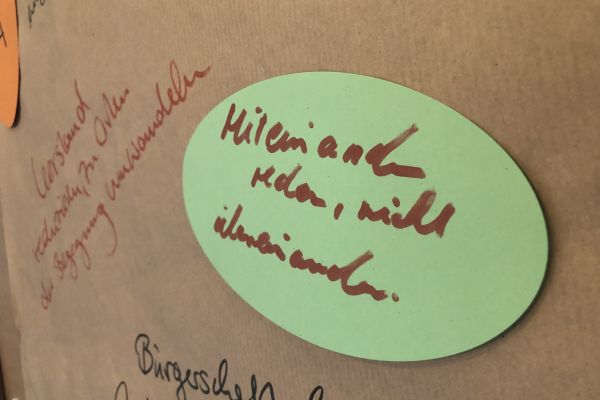 Leerstand
reduzieren, zu Orten
der Begegnung umwandeln
Miteinander
reden, nicht
übereinander.
Bürgerschaft